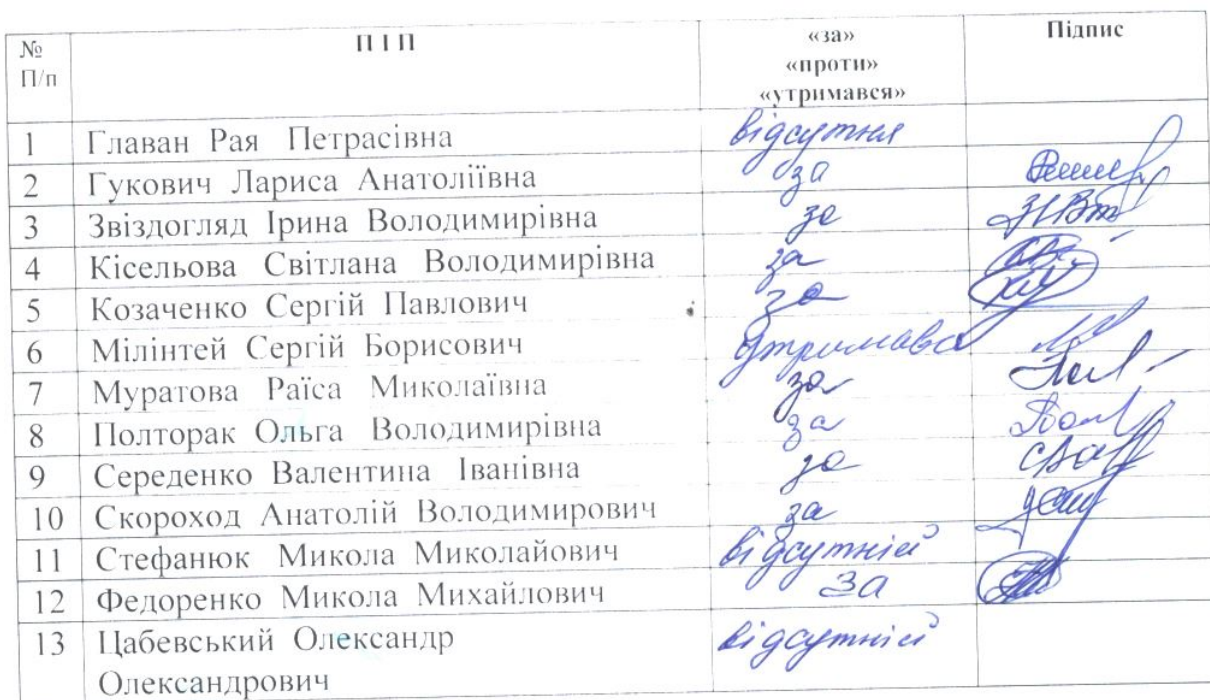 № П І П «за» Підпис
П/п «проти»
«утримався»
1 Главан Рая Петрасівна відсутня
2 Гукович Лариса Анатоліївна за
3 Звіздогляд Ірина Володимирівна за
4 Кісельова Світлана Володимирівна за
5 Козаченко Сергій Павлович за
6 Мілінтей Сергій Борисович утримався
7 Муратова Раїса Миколаївна за
8 Полторак Ольга Володимирівна за
9 Середенко Валентина Іванівна за
10 Скороход Анатолій Володимирович за
11 Стефанюк Микола Миколайович відсутній
12 Федоренко Микола Михайлович за
13 Цабевський Олександр відсутній
Олександрович